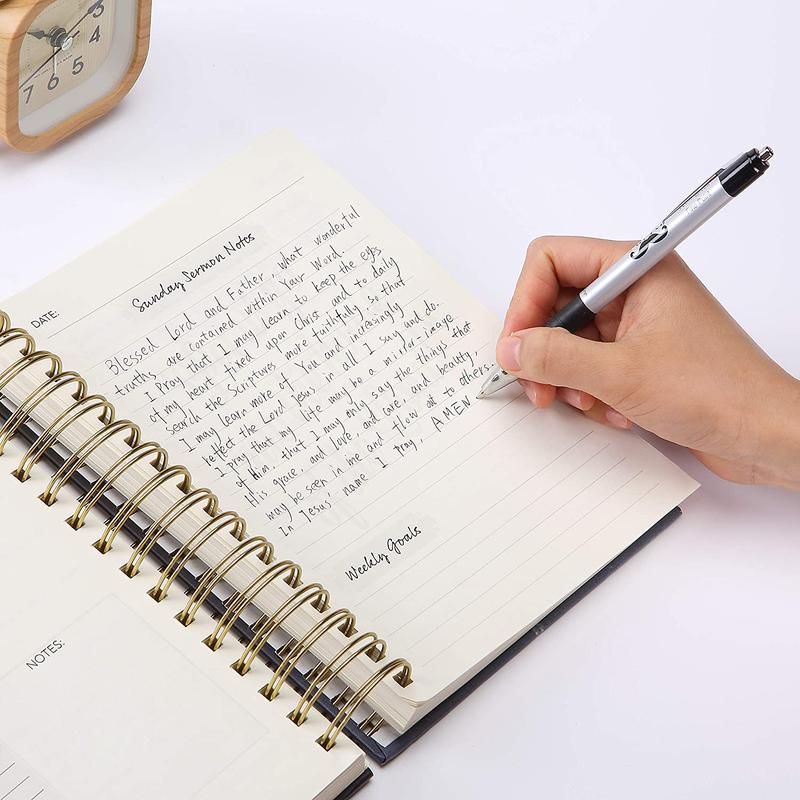 3
4
5
6
7
DATE:
Sunday Sermon Notes
Blessed Lord and Father, what wonderful
truths are contained within Your Word.
I Pray that I may learn to keep the eyes
of my heart fixed upon Christ and to daily
search the Scriptures more faithfully so that
I may learn more of You and increasingly
reflect the Lord Jesus in all I say and do.
I pray that my life may be a mirror-image
of Him, that I may only say the things that
His grace, and love, and care, and beauty,
may be seen in me and flow out to others.
In Jesus' name I Pray, AMEN
Weekly Goals
NOTES: